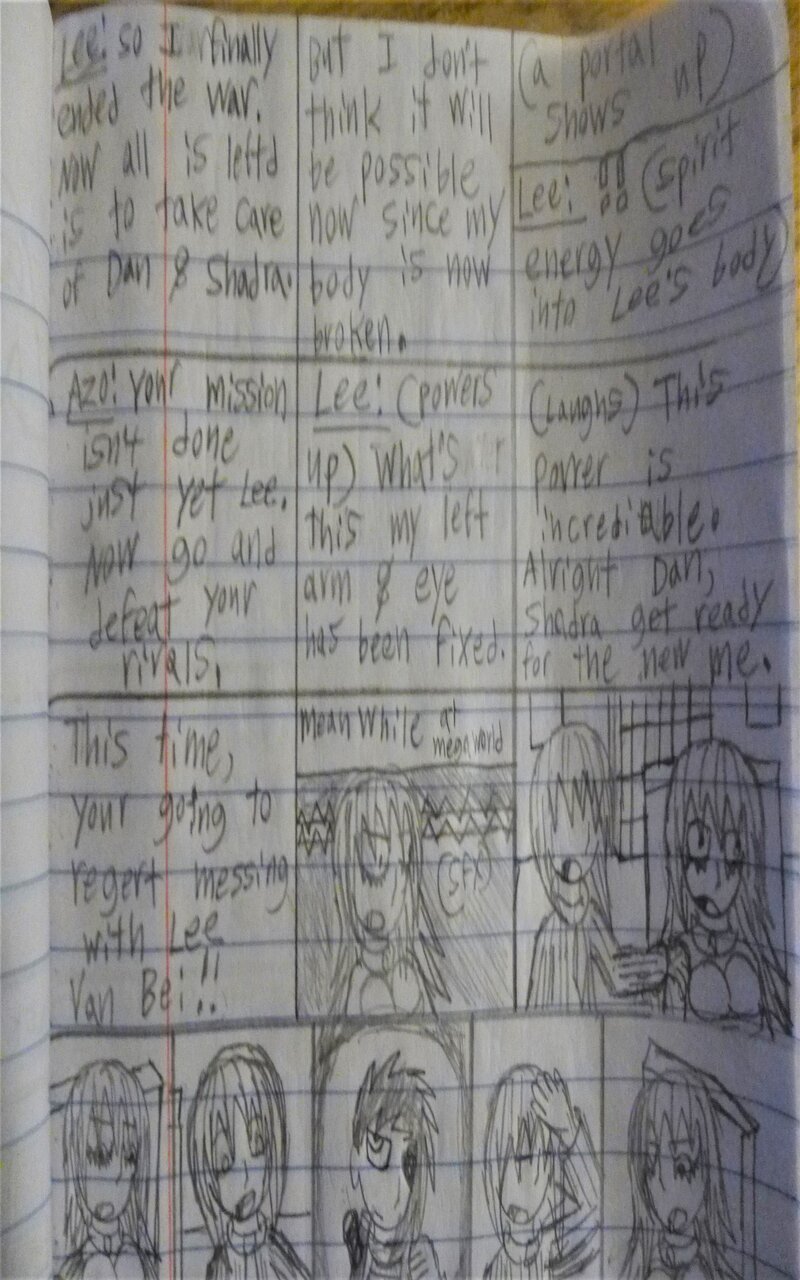 Lee: so I finally
ended the war.
Now all is leftd
is to take care
of Dan & Shadra.
But I don't
think it will
be possible
now since my
body is now
broken.
(a portal
shows up)
Lee: !! (spirit
energy goes
into Lee's body)
Azo: your mission
isn't done
just yet Lee.
Now go and
defeat your
rivals.
Lee: (powers
up) What's
this my left
arm & eye
has been fixed.
(Laughs) This
power is
incredible.
Alright Dan,
Shadra get ready
for the new me.
This time,
your going to
regert messing
with Lee
Van Bei!!
Mean While at
mega world
(sfx)